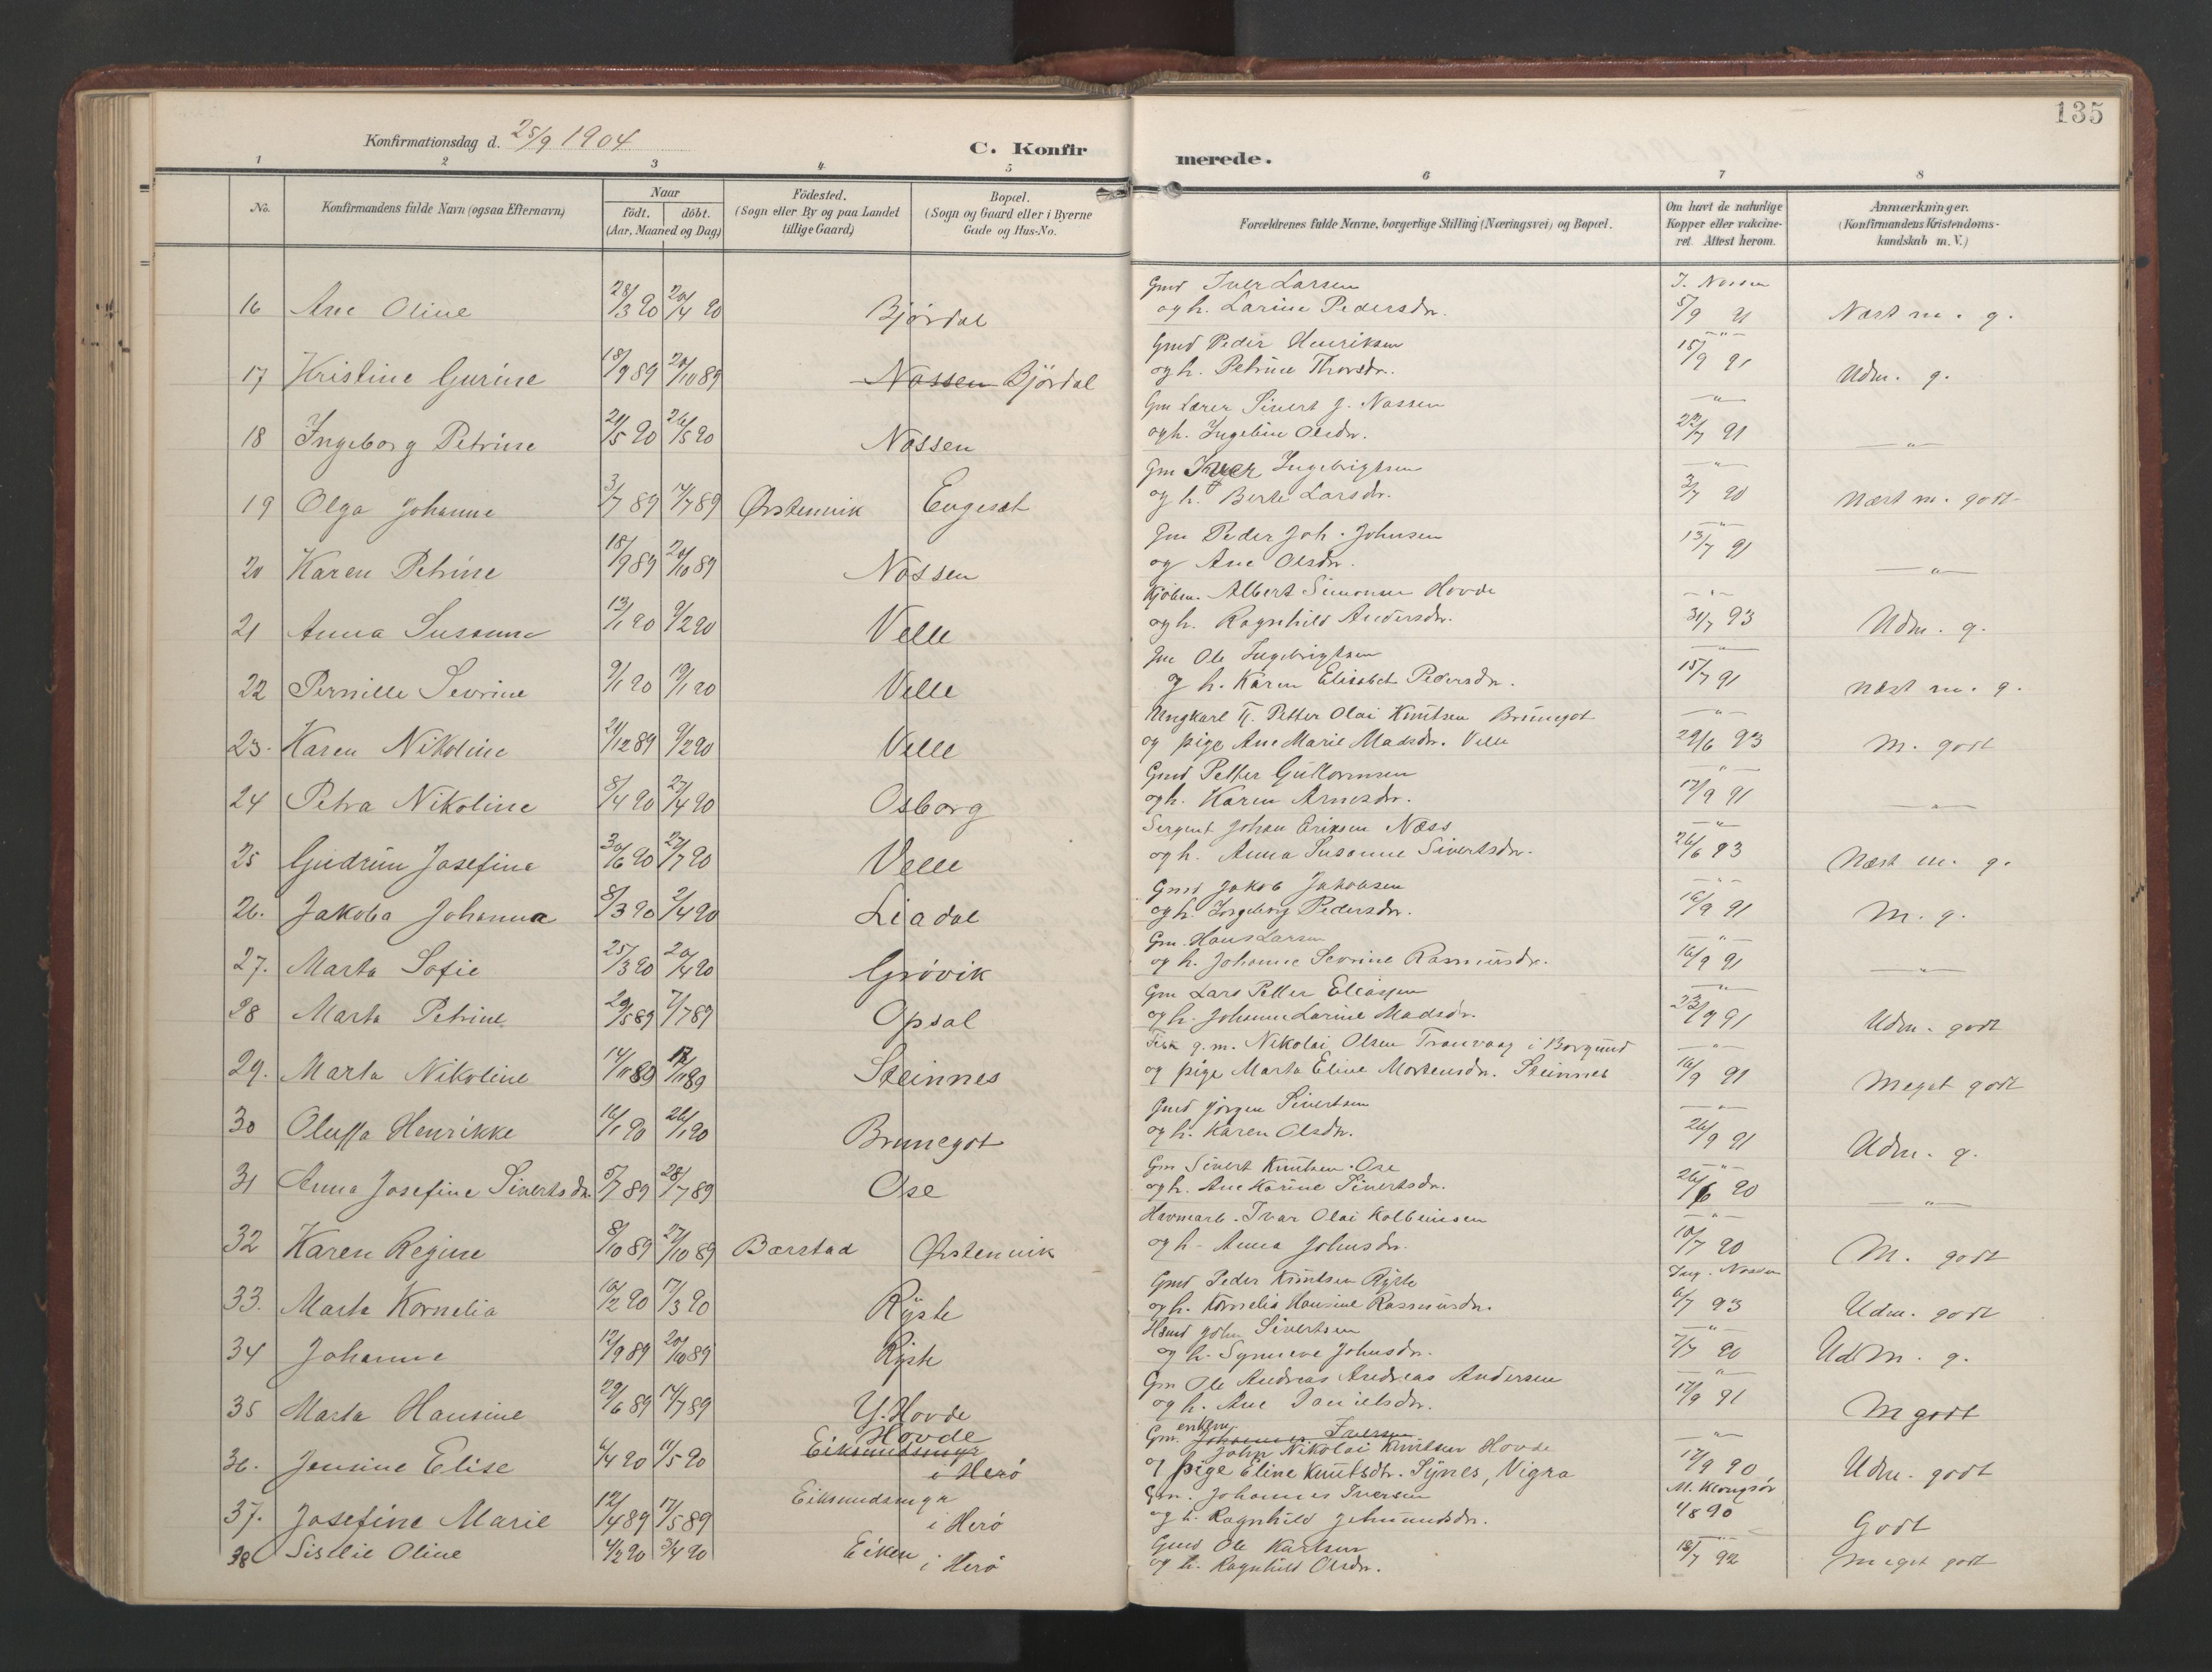 135
Konfirmationsdag d. 25/9 1904
C. Konfirmerede.
1 2 3 4 5 6 7 8
No. Konfirmandens fulde Navn (ogsaa Efternavn) Naar födt. döbt. (Aar, Maaned og Dag) Födested. (Sogn eller By og paa Landet tillige Gaard) Bopæl. (Sogn og Gaard eller i Byerne Gade og Hus-No. Forældrenes fulde Navne, borgerlige Stilling (Næringsvei) og Bopæl. Om havt de naturlige Kopper eller vakcineret. Attest herom. Anmærkninger. (Konfirmandens Kristendomskundskab m. V.)
Gmd Iver Larsen J. Nossen
16 Ane Oline 28/3 90 20/4 90 Bjørdal og h. Larine Pedersdr. 5/9 91 Næst m. g.
Gmd Peder Henriksen —"—
17 Kristine Gurine 18/9 89 20/10 89 Nossen Bjørdal og h. Petrine Thorsdr. 15/9 91 Udm. g.
Gm Lærer Sivert J. Nossen —"—
18 Ingeborg Petrine 21/5 90 26/5 90 Nossen og h. Ingeline Olsdr. 22/7 91 —"—
Gm Iver Ingebrigtsen —"—
19 Olga Johanne 3/7 89 14/7 89 Ørstenvik Engeset og h. Berte Larsdr. 3/7 90 Næst m. godt
Gm Peder Joh. Johnsen —"—
20 Karen Petrine 18/9 89 20/10 89 Nossen og Ane Olsdr. 13/7 91 —"—
Kjøbm. Albert Simonsen Hovde —"—
21 Anna Susanne 13/1 90 9/2 90 Velle og h. Ragnhild Andersdr. 31/7 93 Udm. g.
Gm Ole Ingebrigtsen —"—
22 Pernille Sevrine 9/1 90 19/1 90 Velle og h. Karen Elisabet Pedersdr. 15/7 91 Næst m. g.
Ungkarl Petter Olai Knutsen Brunegot —"—
23. Karen Nikoline 21/12 89 9/2 90 Velle og pige Ane Marie Madsdr. Velle 29/6 93 M. godt
Gmd Petter Guttormsen —"—
24 Petra Nikoline 8/4 90 27/4 90 Osborg og h. Karen Arnesdr. 17/9 91 —"—
Sergent Johan Eriksen Næss —"—
25 Gudrun Josefine 30/6 90 27/7 90 Velle og h. Anna Susanne Sivertsdr. 26/6 93 Næst m. g.
Gmd Jakob Jakobsen —"—
26. Jakoba Johanna 8/3 90 2/4 90 Liadal og h. Ingeborg Pedersdr. 16/9 91 M. g.
Gm. Hans Larsen —"—
27. Marta Sofie 25/3 90 20/4 90 Grøvik og h. Johanne Sevrine Rasmusdr. 16/9 91 —"—
Gm Lars Petter Eliassen —"—
28 Marta Petrine 29/5 89 7/7 89 Opsal og h. Johanne Larine Madsdr. 23/9 91 Udm. godt
Fisk g. m. Nikolai Olsen Tranvaag i Borgund —"—
29. Marta Nikoline 14/11 89 17/11 89 Steinnes og pige Marta Eline Mortensdr. Steinnes 16/9 91 Meget godt
Gmd Jørgen Sivertsen —"—
30 Oluffa Henrikke 16/1 90 26/1 90 Brunegot og h. Karen Olsdr. 26/9 91 Udm. g.
Gm Sivert Knutsen Ose —"—
31 Anna Josefine Sivertsdr. 5/7 89 28/7 89 Ose og h. Ane Karine Sivertsdr. 26/6 90 —"—
Havnarb. Ivar Olai Kolbeinsen —"—
32 Karen Regine 8/10 89 27/10 89 Barstad Ørstenvik og h. Anna Johnsdr. 10/7 90 M. godt
Gmd Peder Knutsen Ryste Ing. Nossen
33. Marta Kornelia 10/2 90 17/3 90 Ryste og h. Kornelia Hansine Rasmusdr. 6/7 93 Udm. godt
Hsmd John Sivertsen —"—
34 Johanne 12/9 89 20/10 89 Ryste og h. Synneve Johnsdr. 7/7 90 Udm. g.
Gm Ole Andreas Andreas Andersen —"—
35 Marta Hansine 29/6 89 14/7 89 Y. Hovde og h. Ane Danielsdr. 17/9 91 M godt
Hovde Gm. enkem. Johannes Iversen —"—
36. Jensine Elise 4/4 90 11/5 90 Eiksundsmyr i Herø John Nikolai Knutsen Hovde
og pige Eline Knutsdtr. Synes, Vigra 17/9 90 Udm. godt
Eiksundsmyr Gm. Johannes Iversen M. Klongsør
37. Josefine Marie 12/4 89 17/5 89 i Herø og h. Ragnhild Jetmundsdr. 4/8 90 Godt
Gmd Ole Karlsen —"—
38 Sislie Oline 4/2 90 3/4 90 Eiken i Herø og h. Ragnhild Olsdr. 18/7 92 Meget godt